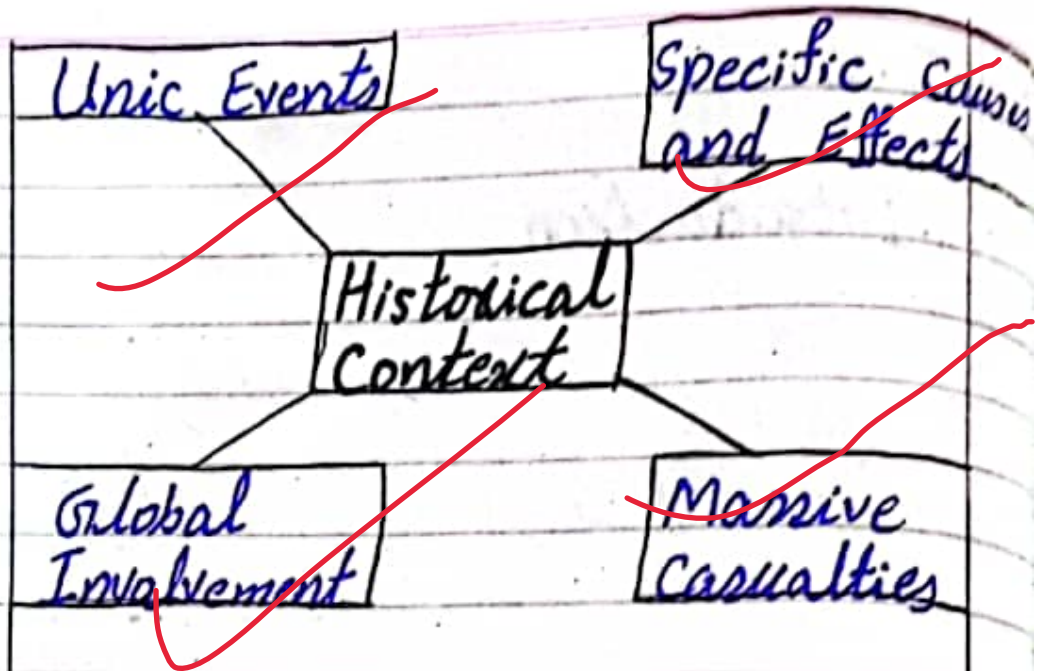 Unic Events
Specific Causes
and Effects
Historical
Context
Global
Involvement
Massive
Casualties